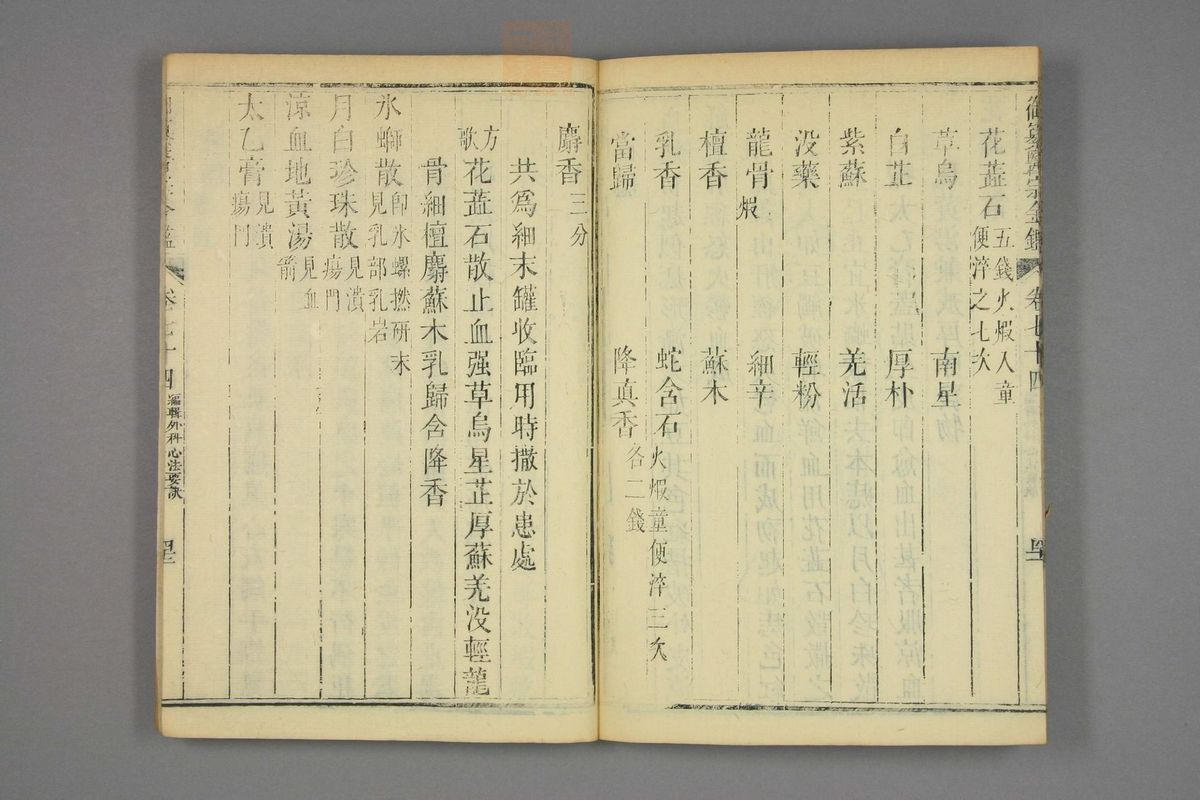 御纂醫宗金鑑 卷七十四
花蕋石五錢火煆入童便淬之七次
草烏 南星
白芷 厚朴
紫蘇 羌活
没藥 輕粉
龍骨煆 細辛
檀香 蘇木
乳香 蛇含石火煆童便淬三次
當歸 降真香各二錢
麝香三分
共爲細末罐收臨用時撒於患處
方歌 花蕋石散止血强草烏星芷厚蘇羌没輕龍
骨細檀麝蘇木乳歸含降香
氷螄散即氷螺撚研末見乳部乳岩
月白珍珠散見潰瘍門
涼血地黃湯見血箭
太乙膏見潰瘍門
卷七十四 編輯外科心法要訣